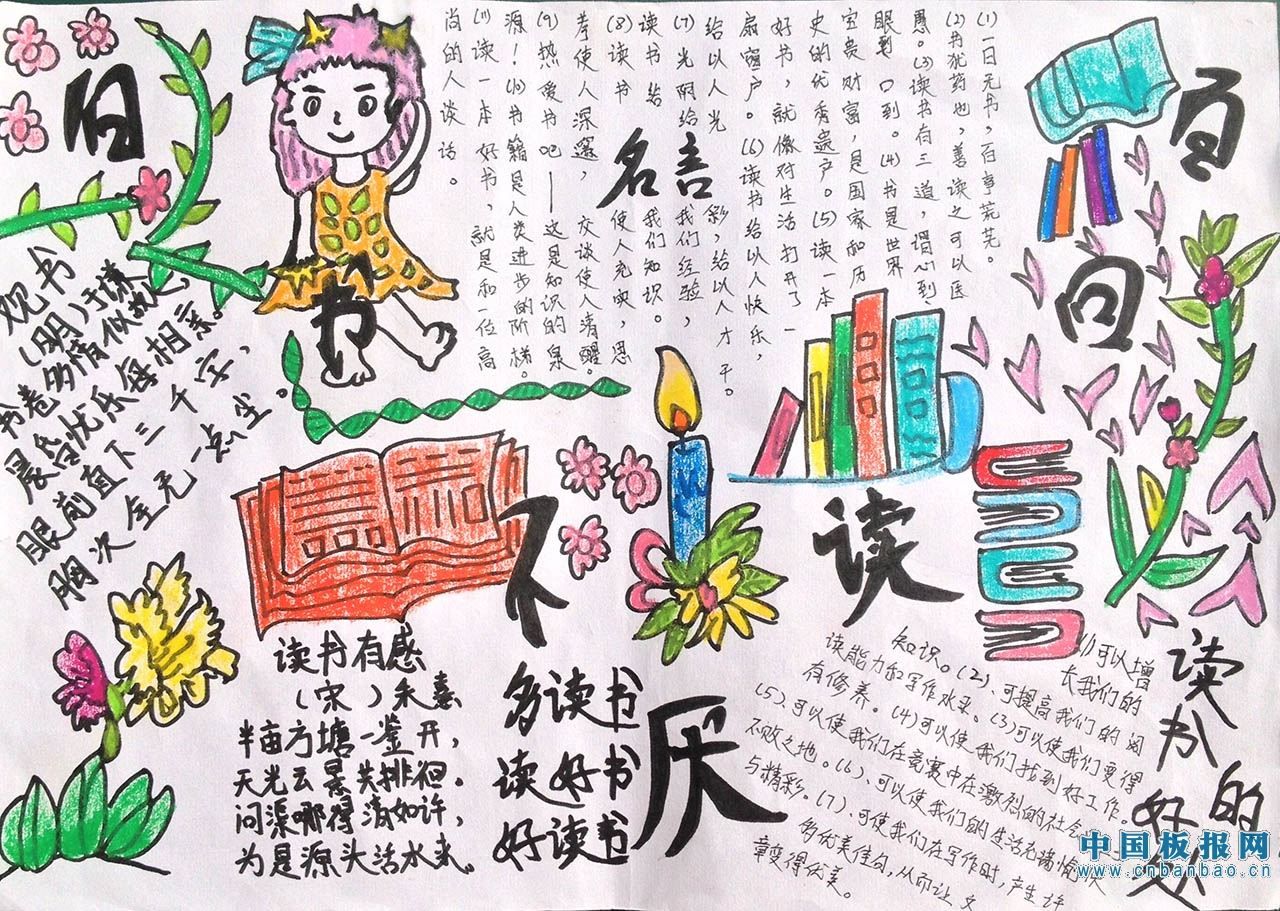 旧
书
不
厌
百
回
读
观书
(明)于谦
书卷多情似故人,
晨昏忧乐每相亲。
眼前直下三千字,
胸次全无一点尘。
名言
(1)一日无书,百事荒芜。
(2)书犹药也,善读之可以医
愚。(3)读书有三道,谓心到、
眼到 口到。(4)书是世界
宝贵财富,是国家和历
史的优秀遗产。(5)读一本
好书,就像对生活打开了一
扇窗户。(6)读书给以人快乐,
给以人光彩,给以人才干。
(7)光阴给我们经验,
读书给我们知识。
(8)读书使人充实,思
考使人深邃,交谈使人清醒。
(9)热爱书吧——这是知识的泉
源!(10)书籍是人类进步的阶梯。
(11)读一本好书,就是和一位高
尚的人谈话。
读书有感
(宋)朱熹
半亩方塘一鉴开,
天光云景共排徊。
问渠哪得清如许,
为是源头活水来。
多读书
读好书
好读书
读书的好处
(1)可以增
长我们的
知识。(2)、可提高我们的阅
读能力和写作水平。(3)可以使我们变得
有修养。(4)可以使我们找到好工作。
(5)、可以使我们在竞赛中在激烈的社会
不败之地。(6)、可以使我们的生活充满愉
与精彩。(7)、可使我们在写作时,产生许
多优美佳句,从而让文
章变得优美。
中国板报网
www.cnbanbao.cn